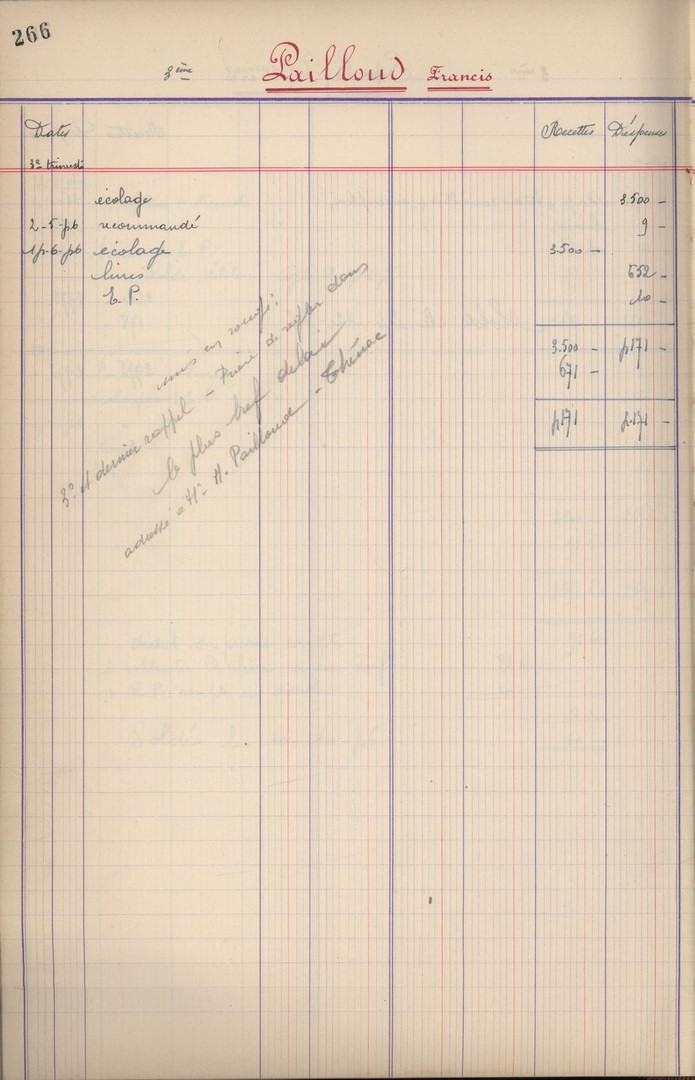 266
3ème Pailloud Francis
Dates Recettes Dépenses
3e trimestre
écolage 3.500 -
2-5-46 recommandé 9 -
14-6-46 écolage 3.500 -
livres 652 -
E. P. 10 -
3.500 - 4171 -
671 -
4171 4171 -
mis en rouge:
3e et dernier rappel - Prière de régler dans
le plus bref délai
adressé à Mr H. Pailloud - Thénac